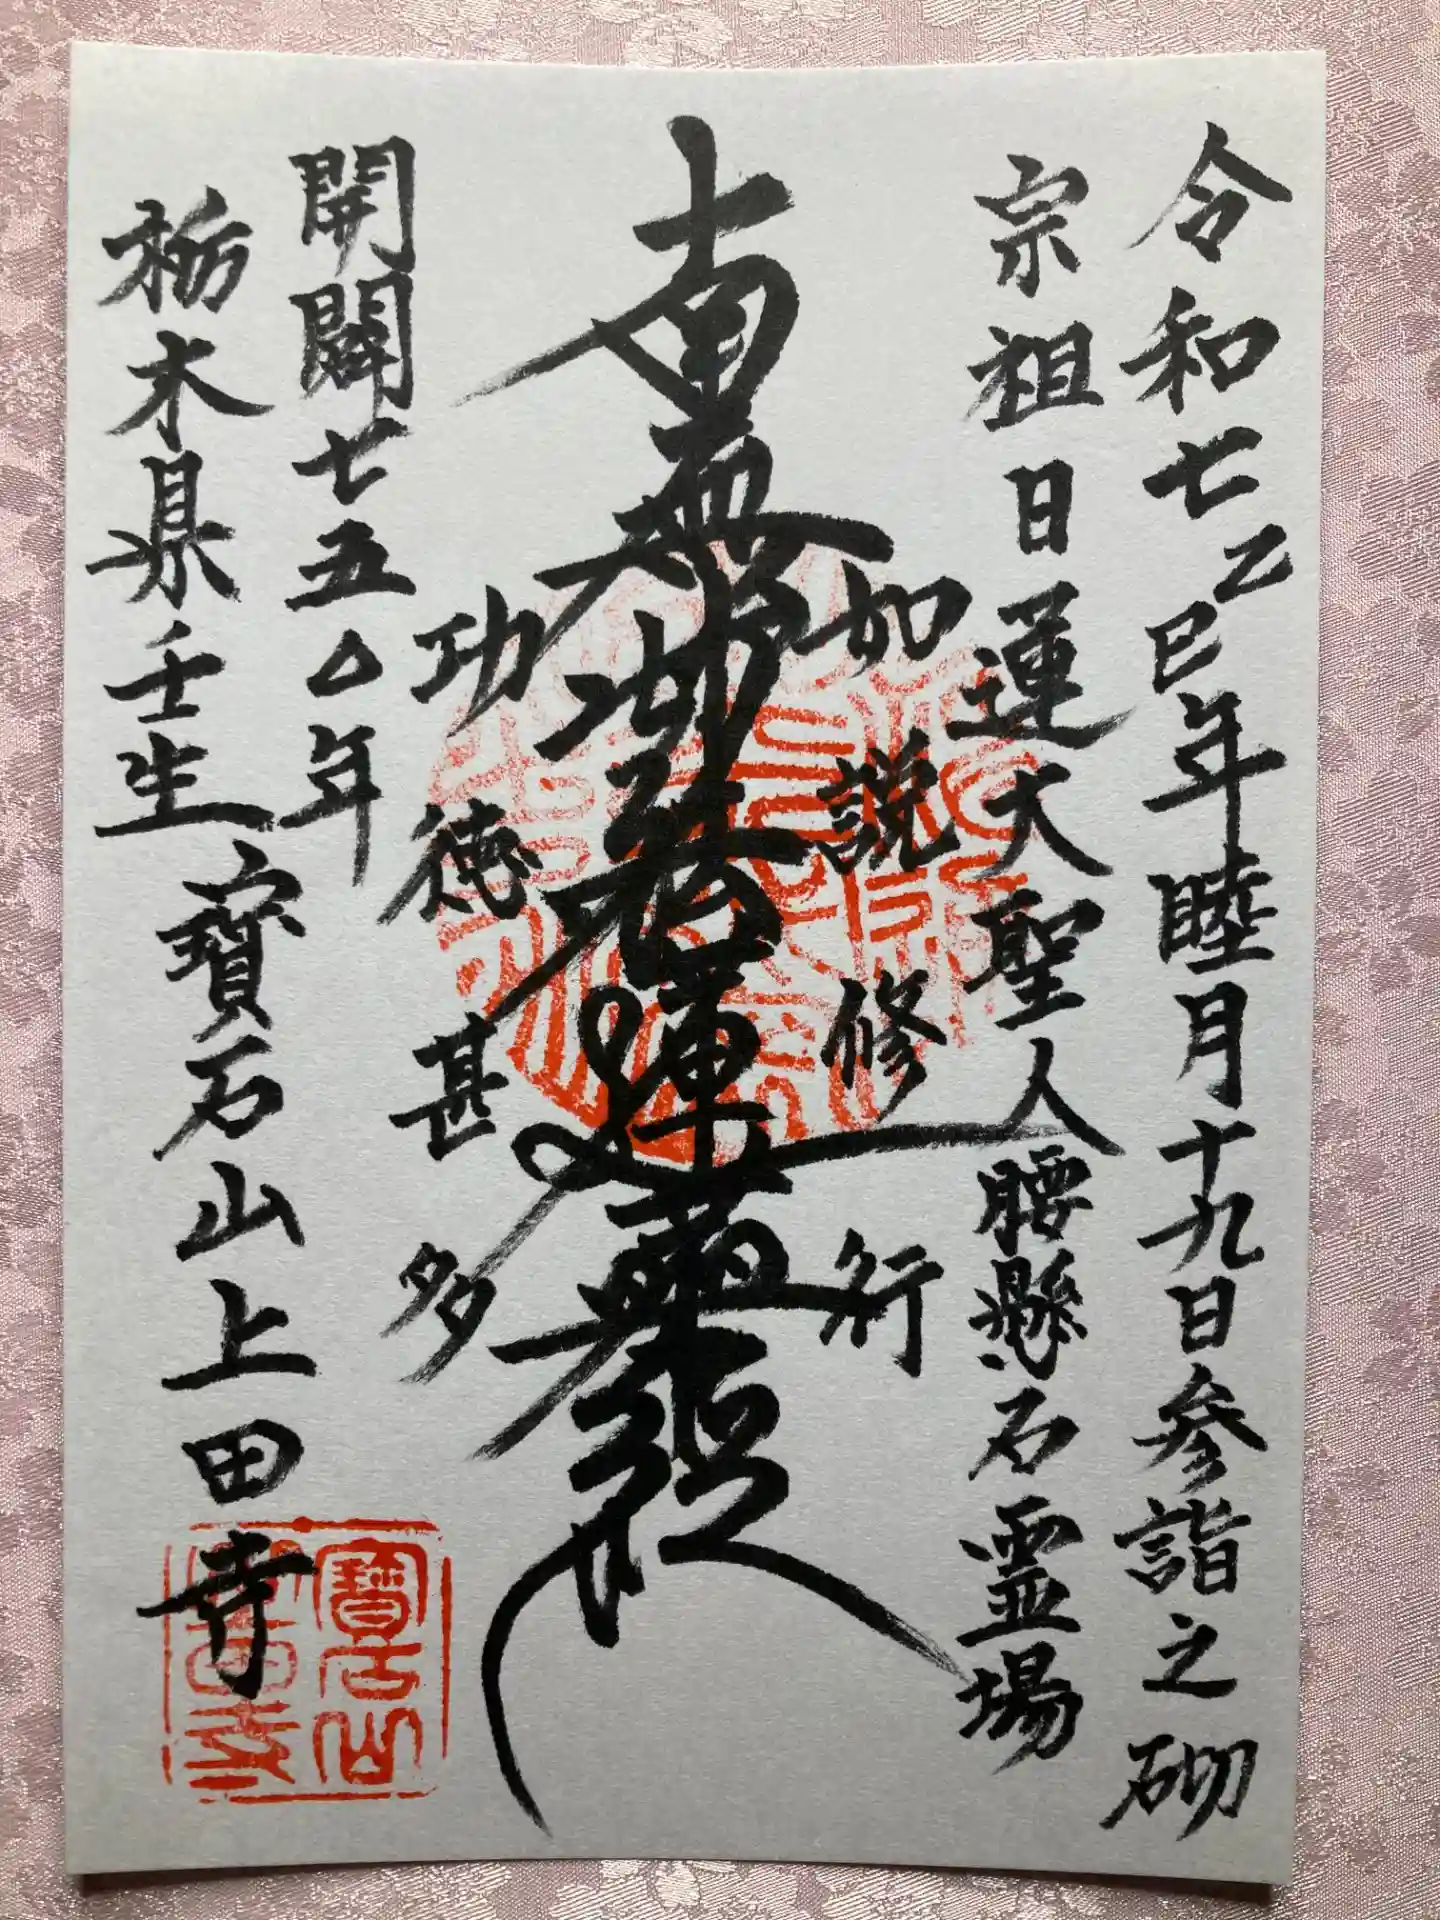 令和七乙巳年睦月十九日参詣之砌
宗祖日蓮大聖人腰懸石霊場
如説修行
南無妙法蓮華経
功徳甚多
開闢七五〇年
栃木県壬生
寳石山上田寺
寳石山